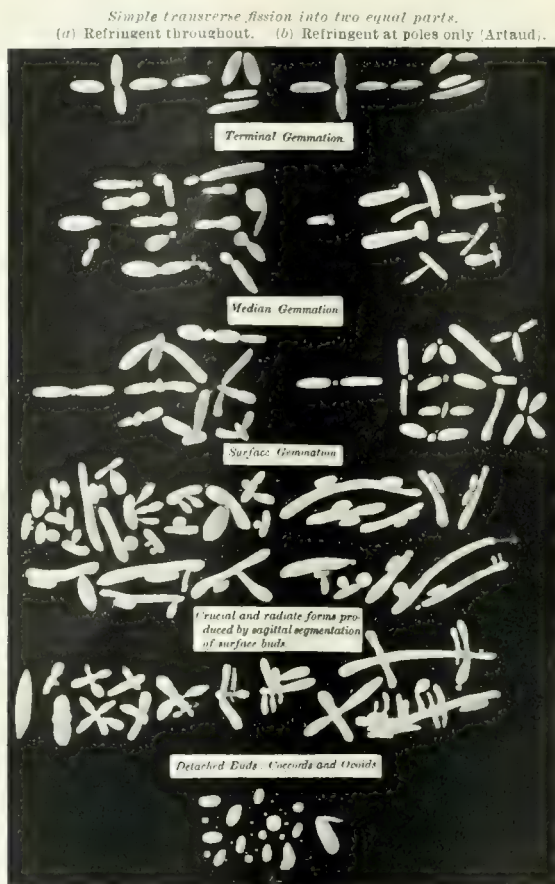 Simple transverse fission into two equal parts.
(a) Refringent throughout. (b) Refringent at poles only (Artaud).
Terminal Gemmation
Median Gemmation
Surface Gemmation
Crucial and radiate forms pro-
duced by sagittal segmentation
of surface buds
Detached Buds. Coccoids and Ovoids